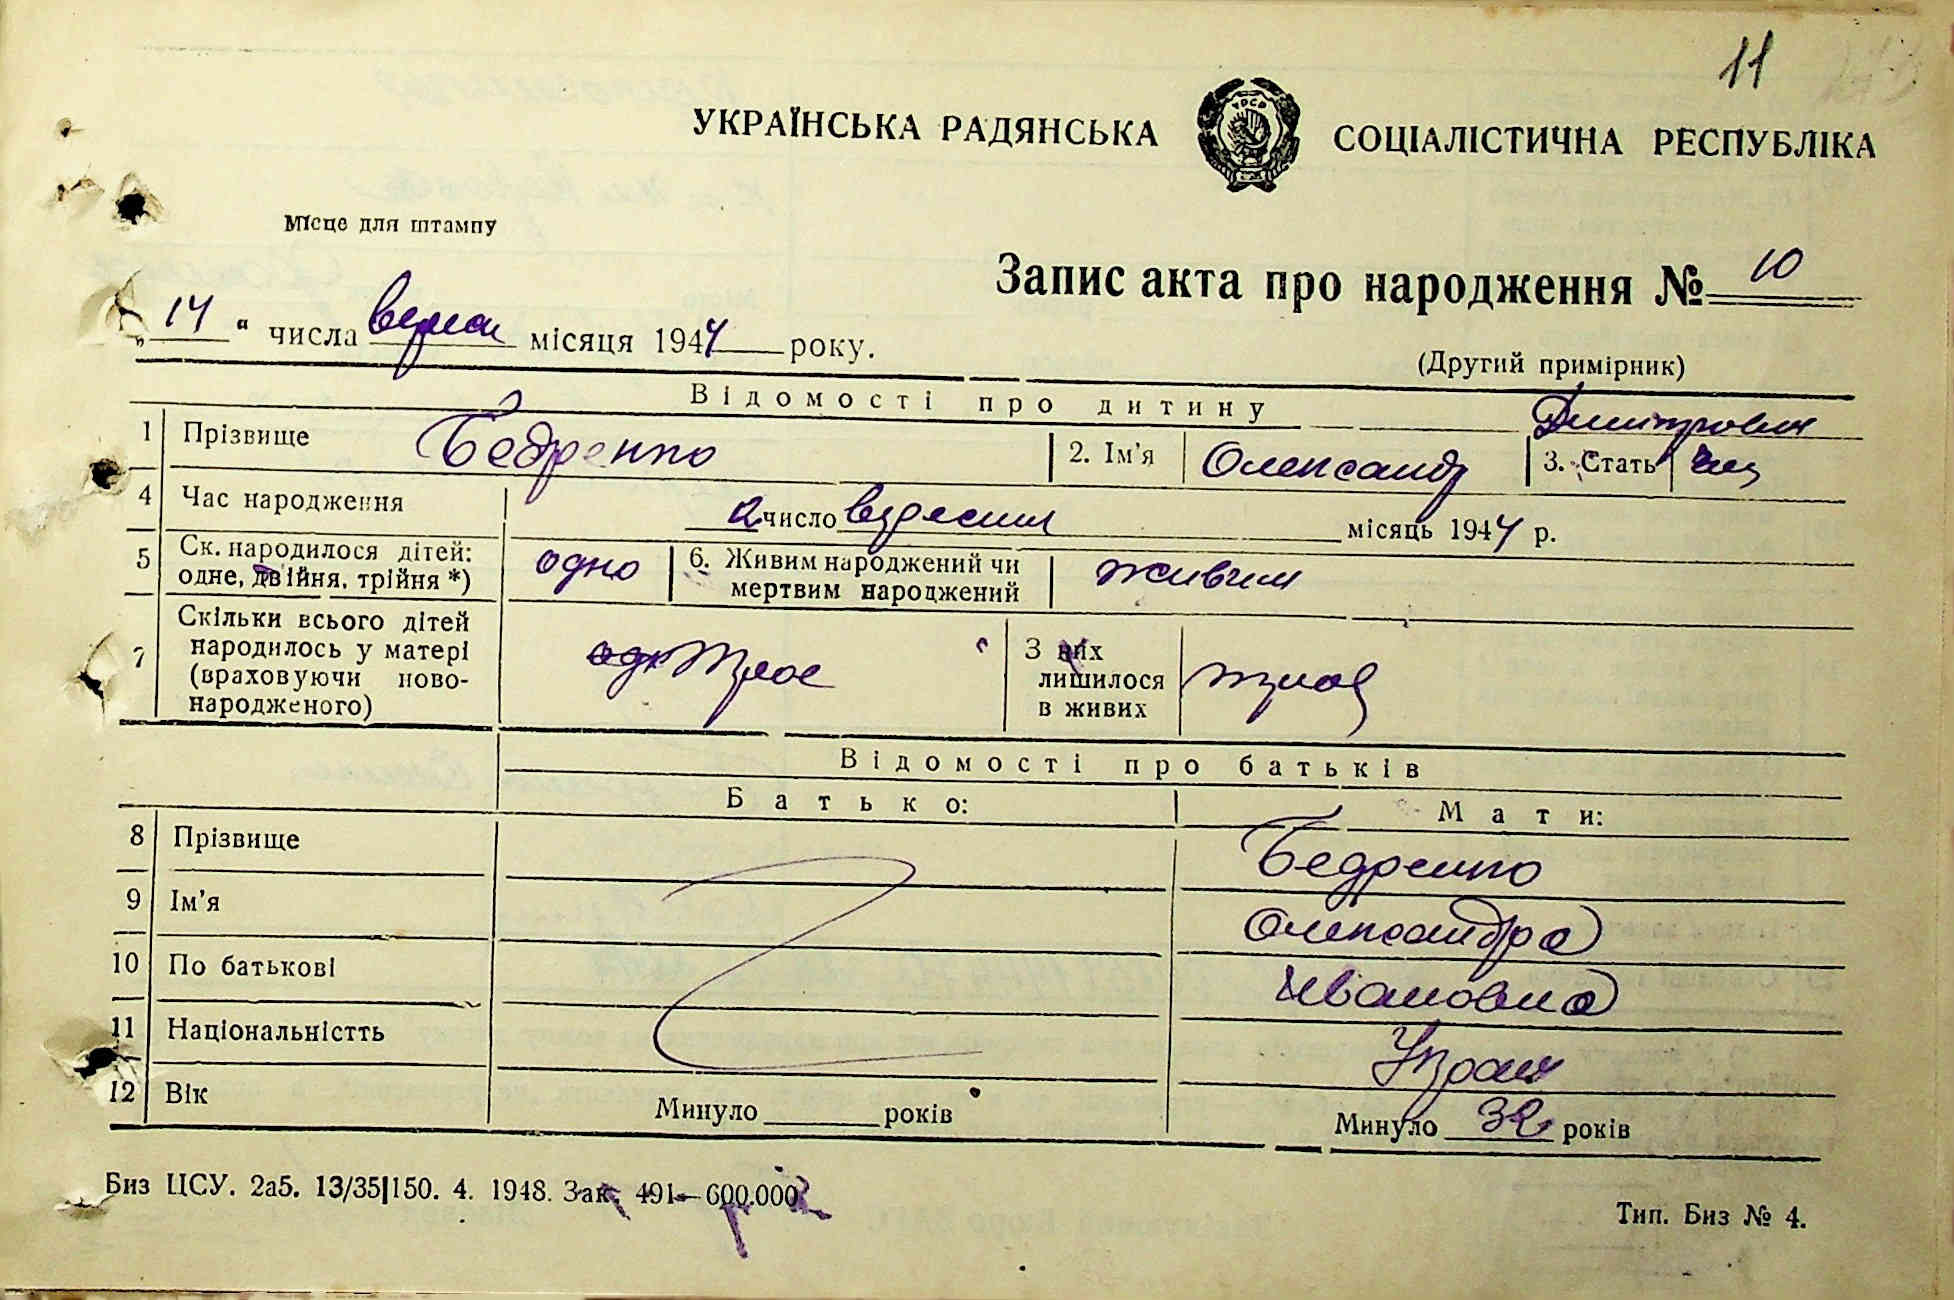 11
УКРАЇНСЬКА РАДЯНСЬКА СОЦІАЛІСТИЧНА РЕСПУБЛІКА
УРСР
Місце для штампу
Запис акта про народження № 10
„ 14 “ числа верес місяця 1944 року.
(Другий примірник)
Відомості про дитину
Дмитрович
1 Прізвище Бедренко 2. Ім'я Олександр 3. Стать чол
4 Час народження 2 число вересня місяць 1944 р.
5 Ск. народилося дітей: одне, двійня, трійня *) одно 6. Живим народжений чи мертвим народжений живим
7 Скільки всього дітей народилось у матері (враховуючи ново-народженого) троє З них лишилося в живих троє
Відомості про батьків
Батько: Мати:
8 Прізвище Бедренко
9 Ім'я Олександра
10 По батькові Ивановна
11 Національністть Украін
12 Вік Минуло років Минуло 32 років
Биз ЦСУ. 2а5. 13/35|150. 4. 1948. Зак. 491—600.000
Тип. Биз № 4.